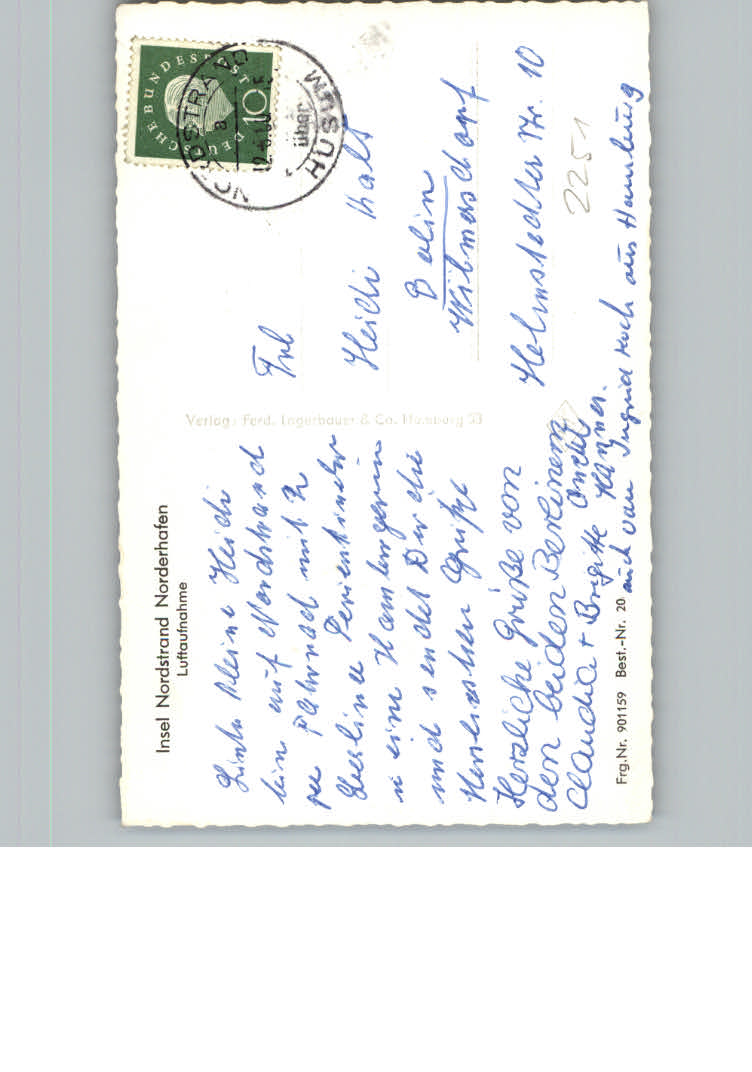 Insel Nordstrand Norderhafen
Luftaufnahme
Liebe kleine Heidi
bin auf Nordstrand
per Fahrrad mit 2
Berliner Ferienkinder
u eine Hamburgerin
und sendet Dir die
Herzlichen Grüße
Herzliche Grüße von
den beiden Berlinern
Claudia + Brigitte Hanner.
auch von Ingrid Koch aus Hamburg
Frg.Nr. 901159 Best.-Nr. 20
Verlag: Ferd. Lagerbauer & Co. Hamburg 33
DEUTSCHE BUNDESPOST
10
NORDSTRAND
über
HUSUM
Frl
Heidi
Berlin
Wilmersdorf
Helmstedter Str. 10
2251